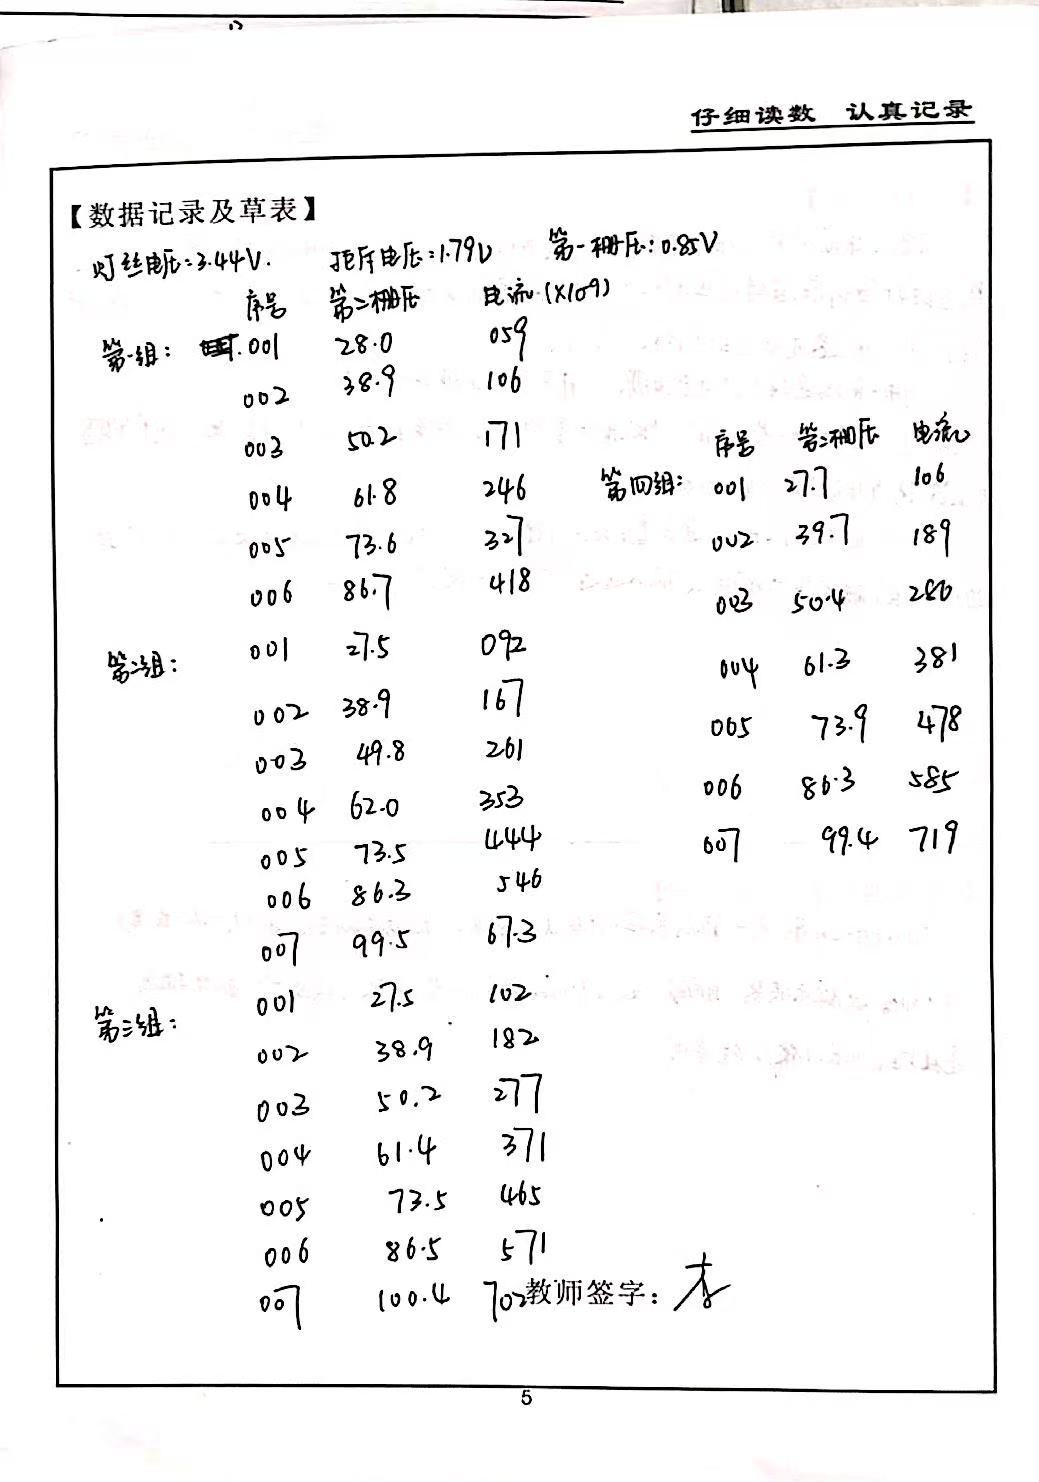 仔细读数 认真记录
【数据记录及草表】
灯丝电压:3.44V. 拒斥电压:1.79V 第一栅压:0.85V
序号 第二栅压 电流(X109)
第一组: 001 28.0 059
002 38.9 106
003 50.2 171
004 61.8 246
005 73.6 327
006 86.7 418
第二组: 001 27.5 092
002 38.9 167
003 49.8 261
004 62.0 353
005 73.5 444
006 86.3 546
007 99.5 673
第三组: 001 27.5 102
002 38.9 182
003 50.2 277
004 61.4 371
005 73.5 465
006 86.5 571
007 100.4 702
序号 第二栅压 电流
第四组: 001 27.7 106
002 39.7 189
003 50.4 280
004 61.3 381
005 73.9 478
006 86.3 585
007 99.4 719
教师签字:
5